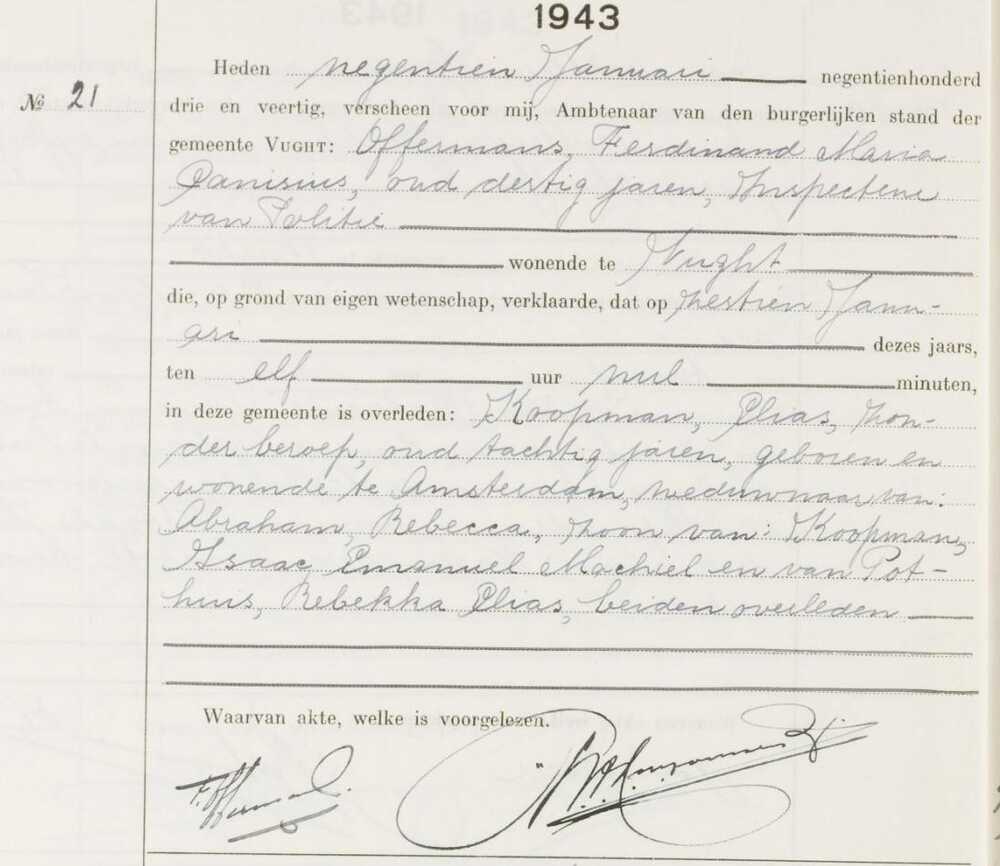 1943
Heden negentien Januari negentienhonderd
№ 21
drie en veertig, verscheen voor mij, Ambtenaar van den burgerlijken stand der
gemeente VUGHT: Offermans, Ferdinand Maria
Canisius, oud dertig jaren, Inspecteur
van Politie
wonende te Vught
die, op grond van eigen wetenschap, verklaarde, dat op zestien Janu-
ari dezes jaars,
ten elf uur nul minuten,
in deze gemeente is overleden: Koopman, Elias, zon-
der beroep, oud tachtig jaren, geboren en
wonende te Amsterdam, weduwnaar van:
Abraham, Rebecca, zoon van: Koopman,
Isaac Emanuel Machiel en van Pot-
huis, Rebekka Elias, beiden overleden
Waarvan akte, welke is voorgelezen.